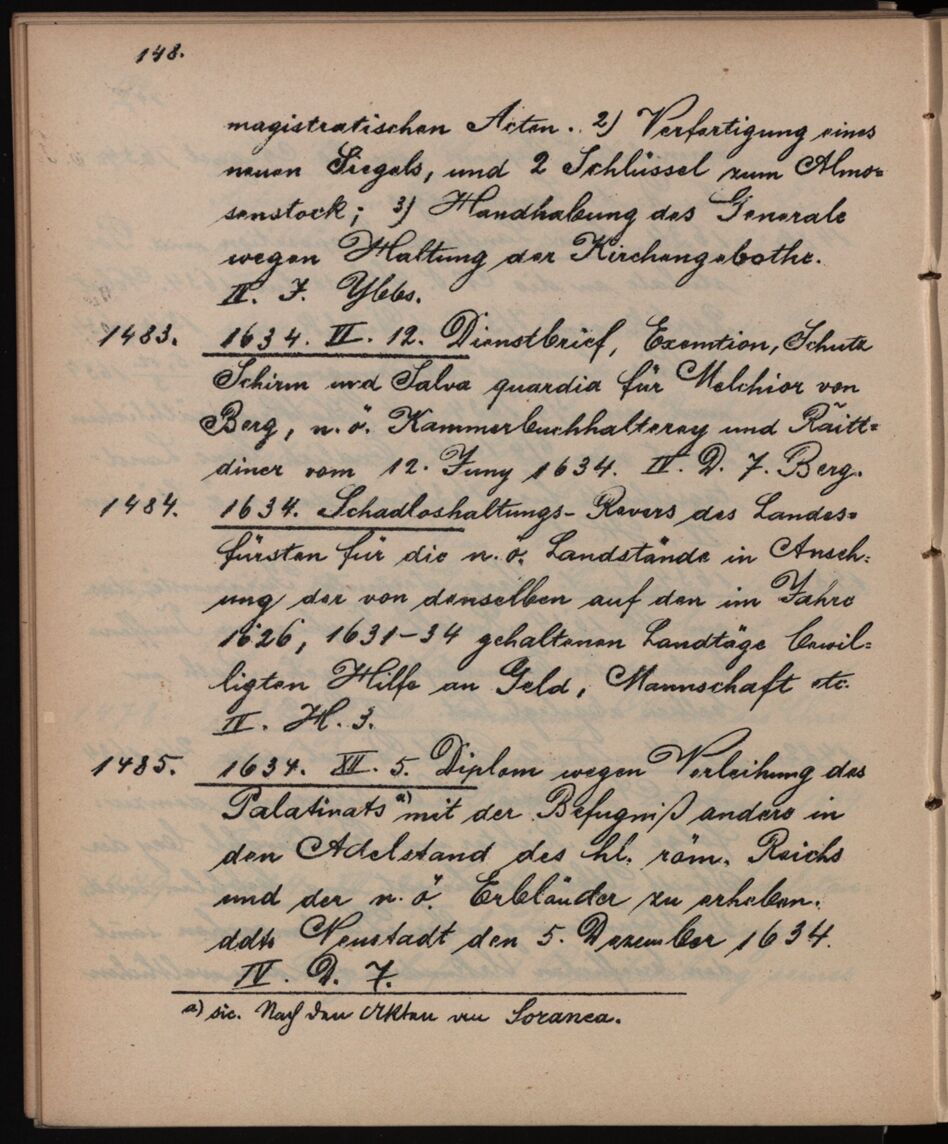 148.
magistratischen Acten. 2) Verfertigung eines
neuen Siegels, und 2 Schlüssel zum Almo=
senstock; 3) Handhabung des Generale
wegen Haltung der Kirchengebothe.
IV. J. Ybbs.
1483. 1634. VI. 12. Dienstbrief, Exemtion, Schutz
Schirm und Salva guardia für Melchior von
Berg, n. ö. Kammerbuchhalterey und Raitt=
diner vom 12. Juny 1634. IV. D. 7. Berg.
1484. 1634. Schadloshaltungs-Revers des Landes=
fürsten für die n. ö. Landstände in Anseh=
ung der von denselben auf den im Jahre
1626, 1631-34 gehaltenen Landtäge bewil=
ligten Hilfe an Geld, Mannschaft etc.
IV. H. 3.
1485. 1634. XII. 5. Diplom wegen Verleihung des
Palatinats a) mit der Befugniß andere in
den Adelstand des hl. röm. Reichs
und der n. ö. Erbländer zu erheben.
ddto Neustadt den 5. Dezember 1634.
IV. D. 7.
a) sic. Nach den Akten von Soranea.